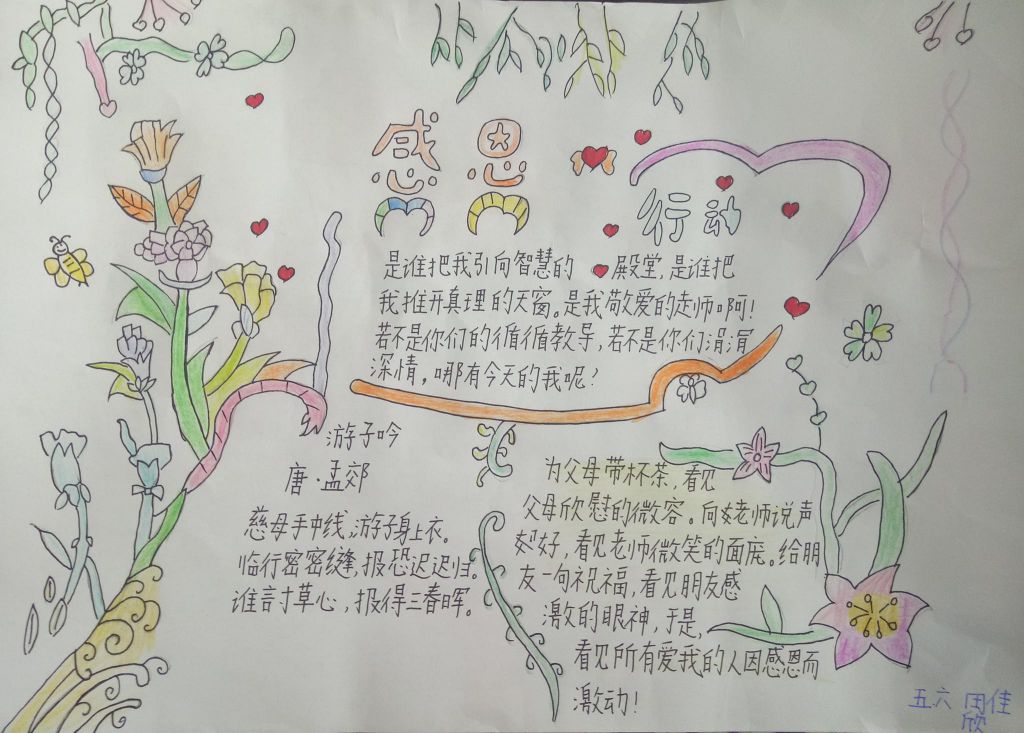 感恩
行动
是谁把我引向智慧的殿堂,是谁把
我推开真理的天窗。是我敬爱的老师啊!
若不是你们的循循教导,若不是你们涓涓
深情,哪有今天的我呢?
游子吟
唐·孟郊
慈母手中线,游子身上衣。
临行密密缝,报恐迟迟归。
谁言寸草心,报得三春晖。
为父母带杯茶,看见
父母欣慰的微容。向老师说声
好,看见老师微笑的面庞。给朋
友一句祝福,看见朋友感
激的眼神,于是,
看见所有爱我的人因感恩而
激动!
五.六 田佳
欣